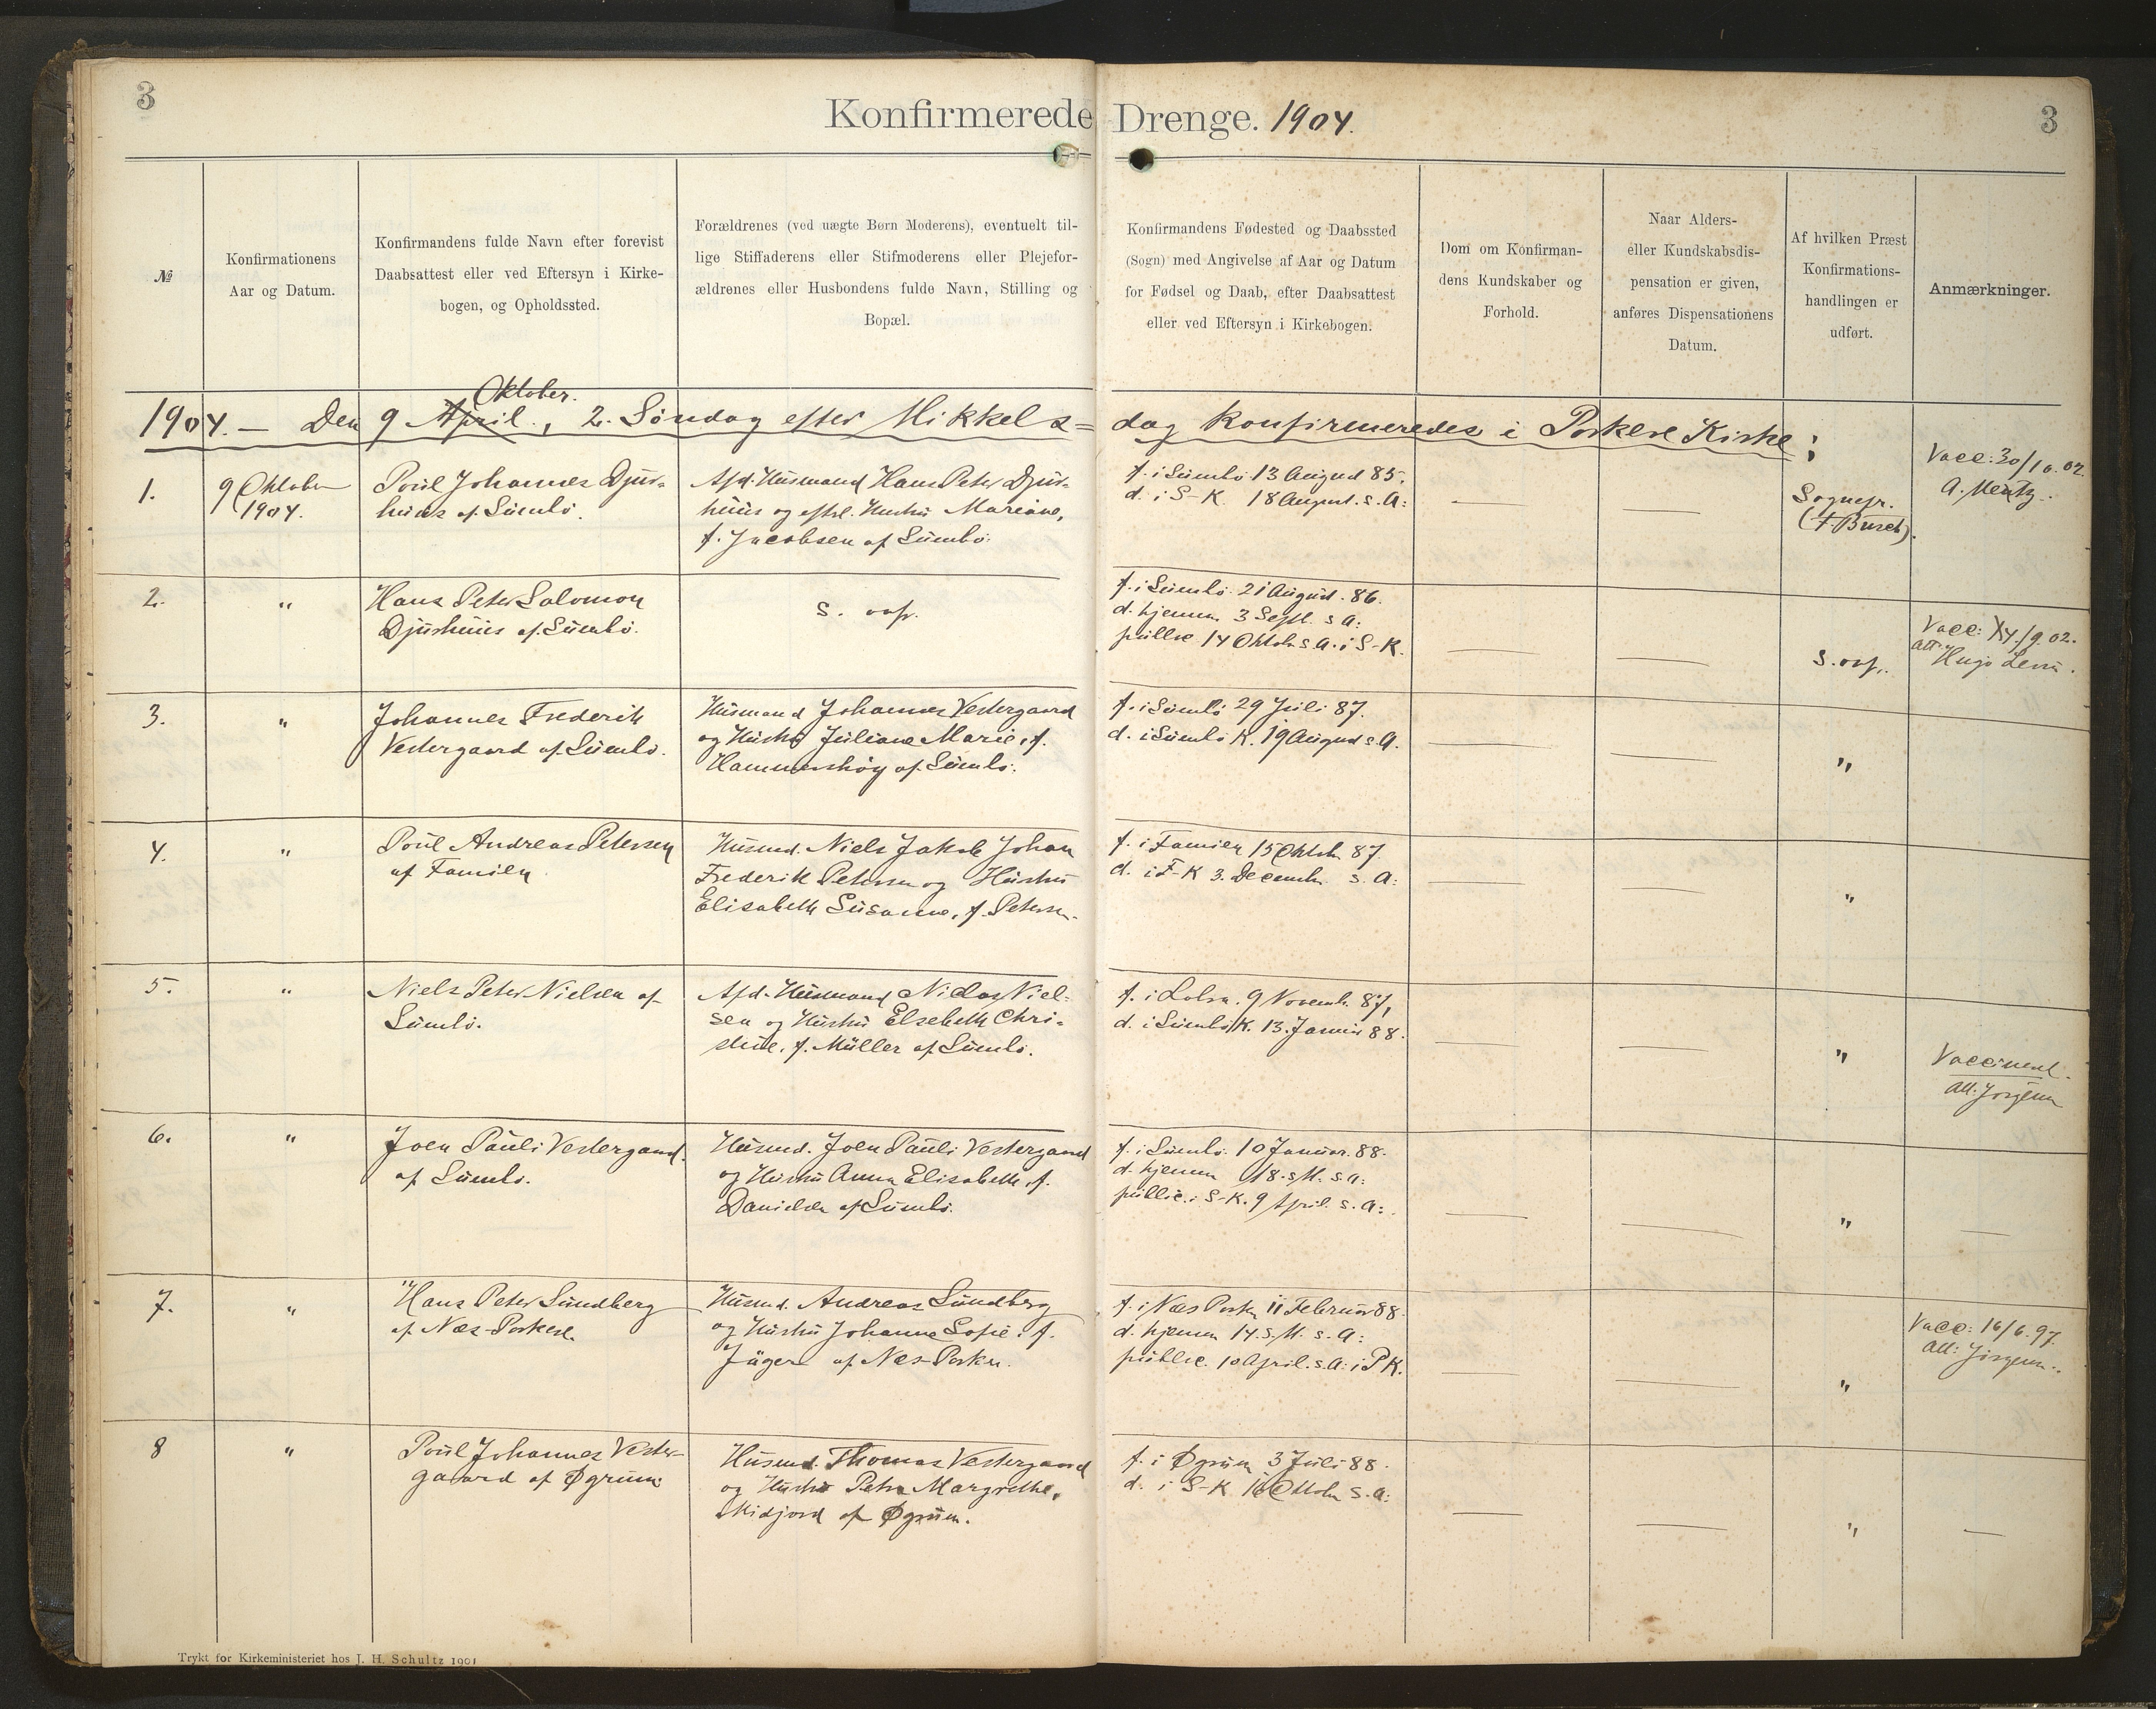 3
Konfirmerede Drenge. 1904.
3
№
Konfirmationens
Aar og Datum.
Konfirmandens fulde Navn efter forevist
Daabsattest eller ved Eftersyn i Kirke-
bogen, og Opholdssted.
Forældrenes (ved uægte Børn Moderens), eventuelt til-
lige Stiffaderens eller Stifmoderens eller Plejefor-
ældrenes eller Husbondens fulde Navn, Stilling og
Bopæl.
Konfirmandens Fødested og Daabssted
(Sogn) med Angivelse af Aar og Datum
for Fødsel og Daab, efter Daabsattest
eller ved Eftersyn i Kirkebogen.
Dom om Konfirman-
dens Kundskaber og
Forhold.
Naar Alders-
eller Kundskabsdis-
pensation er given,
anføres Dispensationens
Datum.
Af hvilken Præst
Konfirmations-
handlingen er
udført.
Anmærkninger.
Oktober.
1904. — Den 9 April, 2. Søndag efter Mikkels=dag konfirmeredes i Porkere Kirke:
1.
9 Oktober
1904.
Poul Johannes Djur-
huus af Sumbø.
Afd. Husmand Hans Peter Djur-
huus og eftl. Hustru Mariane,
f. Jacobsen af Sumbø.
f. i Sumbø 13 August 85.
d. i S-K. 18 August. s. A:
—
—
Sognepr.
(F. Busch).
Vacc: 30/10.02.
A. Mentz.
2.
"
Hans Peter Salomon
Djurhuus af Sumbø.
s. ovf.
f. i Sumbø. 21 August. 86.
d. hjemme 3 Sept. s A:
publ. 14 Oktob. s. A. i S-K.
—
—
s. ovf.
Vacc: 14/9.02.
att. Hugo Levi.
3.
"
Johannes Frederik
Vestergaard af Sumbø.
Husmand Johannes Vestergaard
og Hustru Juliane Marie, f.
Hammershøy af Sumbø.
f. i Sumbø 29 Juli 87.
d. i Sumbø K. 19 August s. A.
—
—
"
4.
"
Poul Andreas Petersen
af Famien
Husmd. Niels Jakob Johan
Frederik Petersen og Hustru
Elisabeth Susanne, f. Petersen.
f. i Famien 15 Oktob. 87.
d. i F-K 3. Decemb. s. A:
—
—
"
5.
"
Niels Peter Nielsen af
Sumbø.
Afd. Husmand Niclas Niel-
sen og Hustru Elsebeth Chri-
stine, f. Müller af Sumbø.
f. i Lobra. 9 Novemb. 87,
d. i Sumbø K. 13. Januar 88.
—
—
"
Vaccineret.
Att: Jørgensen
6.
"
Joen Pauli Vestergaard.
af Sumbø.
Husmd. Joen Pauli Vestergaard
og Hustru Anna Elisabeth, f.
Danielsen af Sumbø.
f. i Sumbø. 10 Januar. 88.
d. hjemme 18. s. M. s. A:
public. i S-K. 9 April. s. A:
—
—
"
—
7.
"
Hans Peter Lundberg
af Næs-Porkere
Husmd. Andreas Lundberg
og Hustru Johanne Sofie, f.
Jäger af Næs-Porke.
f. i Næs Pork. 11 Februar 88.
d. hjemme 14. s. M. s. A:
public. 10 April. s. A: i P K.
—
—
"
Vacc: 16/6.97.
Att: Jørgensen.
8
"
Poul Johannes Vester-
gaard af Øgrum
Husmd. Thomas Vestergaard
og Hustru Petra Margrethe,
Midjord af Øgrum.
f. i Øgrum 3 Juli 88.
d. i S-K 16 Oktob. s. A:
—
—
"
—
Trykt for Kirkeministeriet hos J. H. Schultz 1901